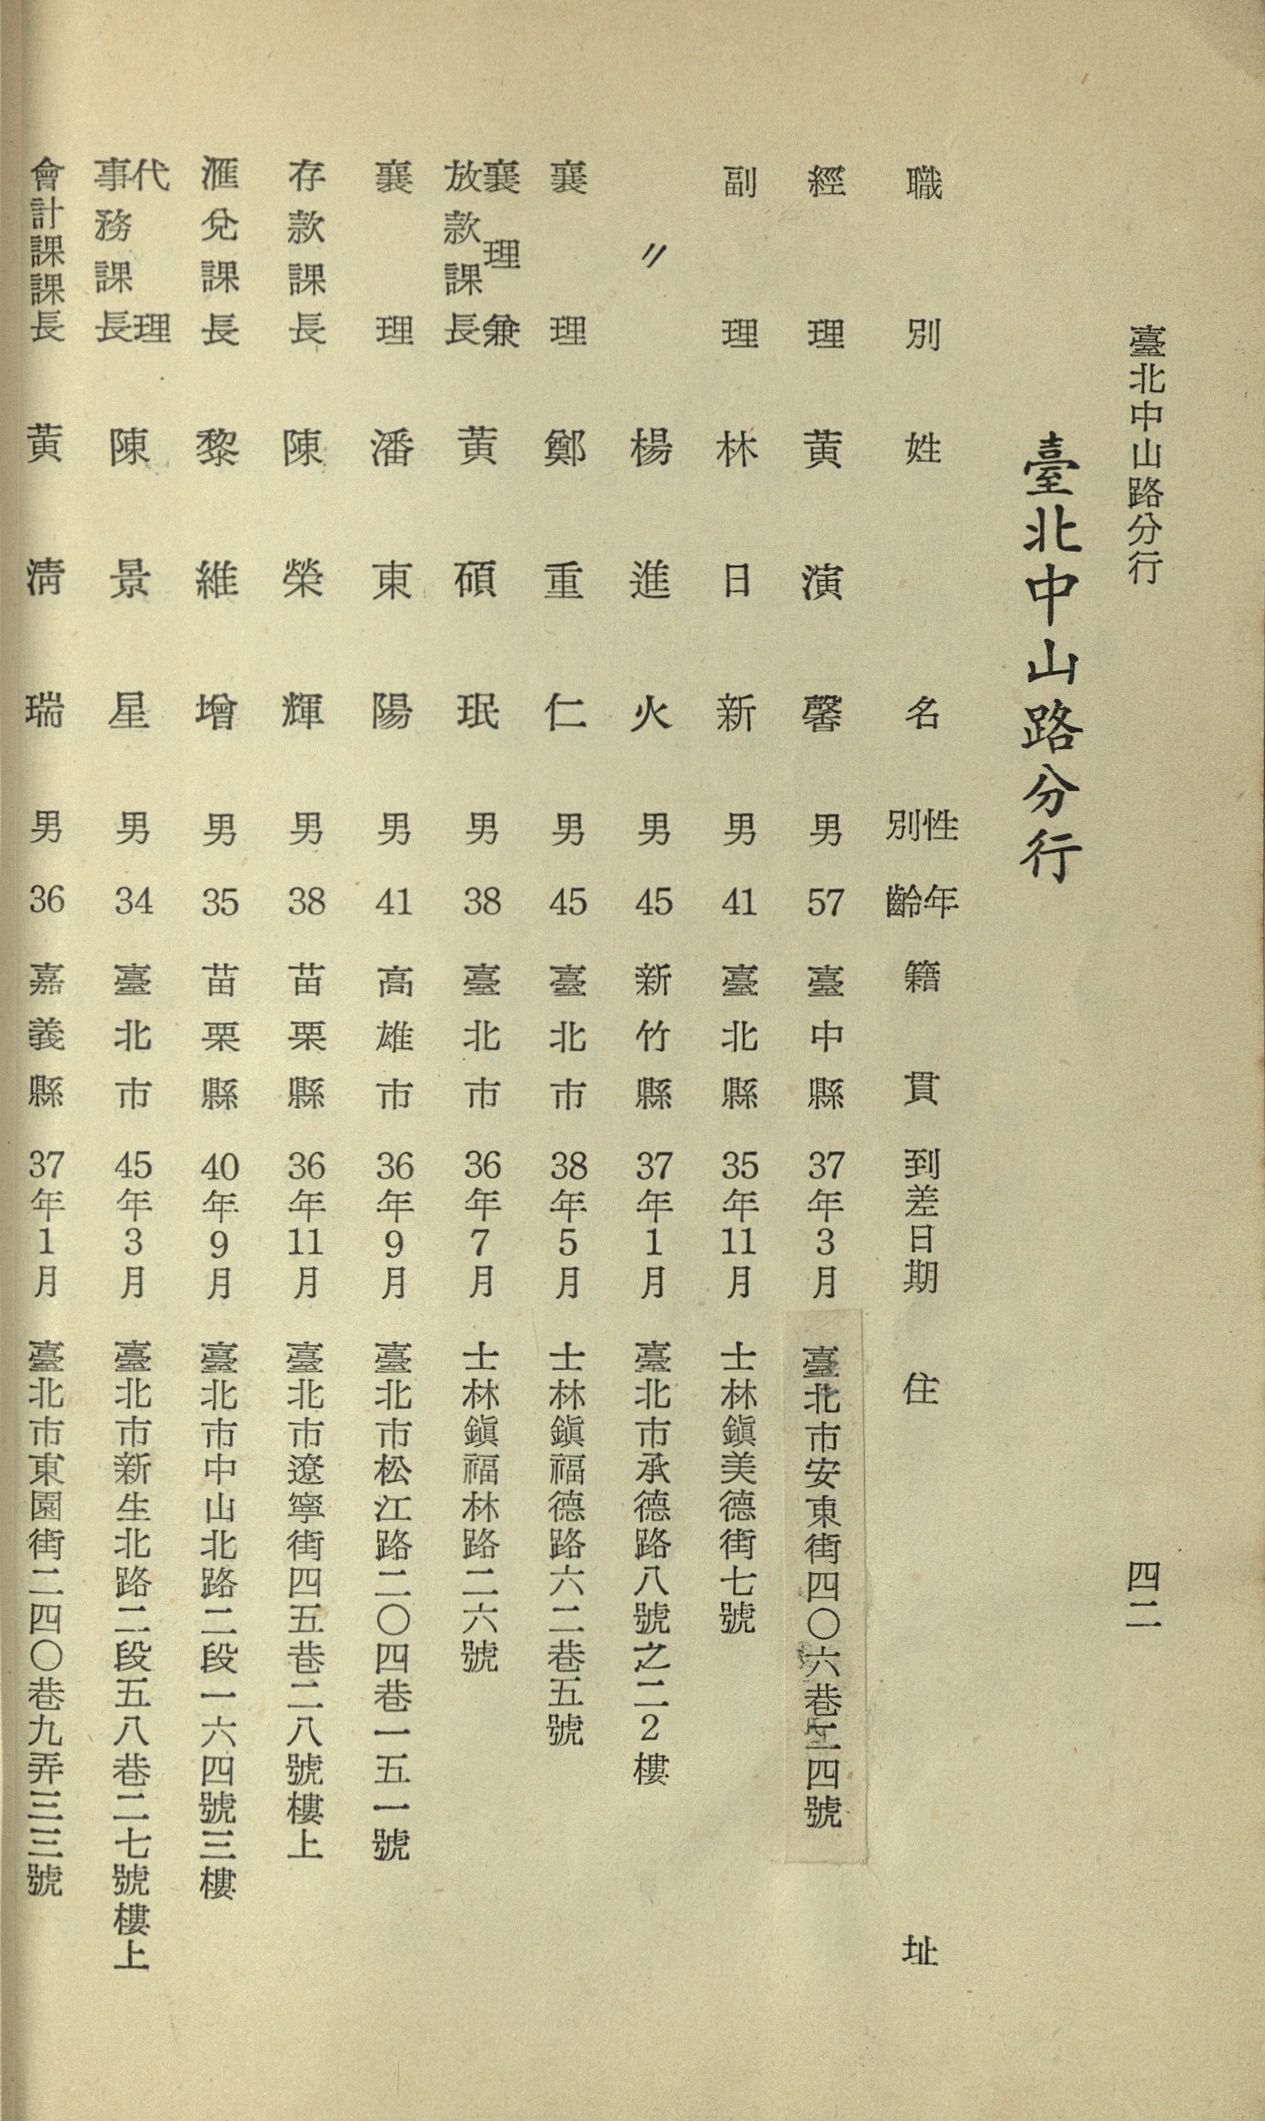 臺北中山路分行
四二
臺北中山路分行
職別 姓名 性別 年齡 籍貫 到差日期 住址
經理 黃演馨 男 57 臺中縣 37年3月 臺北市安東街四〇六巷二四號
副理 林日新 男 41 臺北縣 35年11月 士林鎭美德街七號
〃 楊進火 男 45 新竹縣 37年1月 臺北市承德路八號之二2樓
襄理 鄭重仁 男 45 臺北市 38年5月 士林鎭福德路六二巷五號
襄理兼放款課長 黃碩珉 男 38 臺北市 36年7月 士林鎭福林路二六號
襄理 潘東陽 男 41 高雄市 36年9月 臺北市松江路二〇四巷一五一號
存款課長 陳榮輝 男 38 苗栗縣 36年11月 臺北市遼寧街四五巷二八號樓上
滙兌課長 黎維增 男 35 苗栗縣 40年9月 臺北市中山北路二段一六四號三樓
代理事務課長 陳景星 男 34 臺北市 45年3月 臺北市新生北路二段五八巷二七號樓上
會計課課長 黃淸瑞 男 36 嘉義縣 37年1月 臺北市東園街二四〇巷九弄三三號